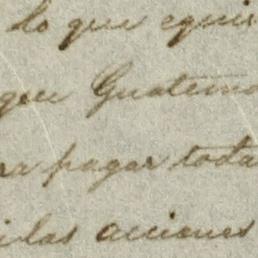 lo que equi
que Guatema
pagar toda
las acciones